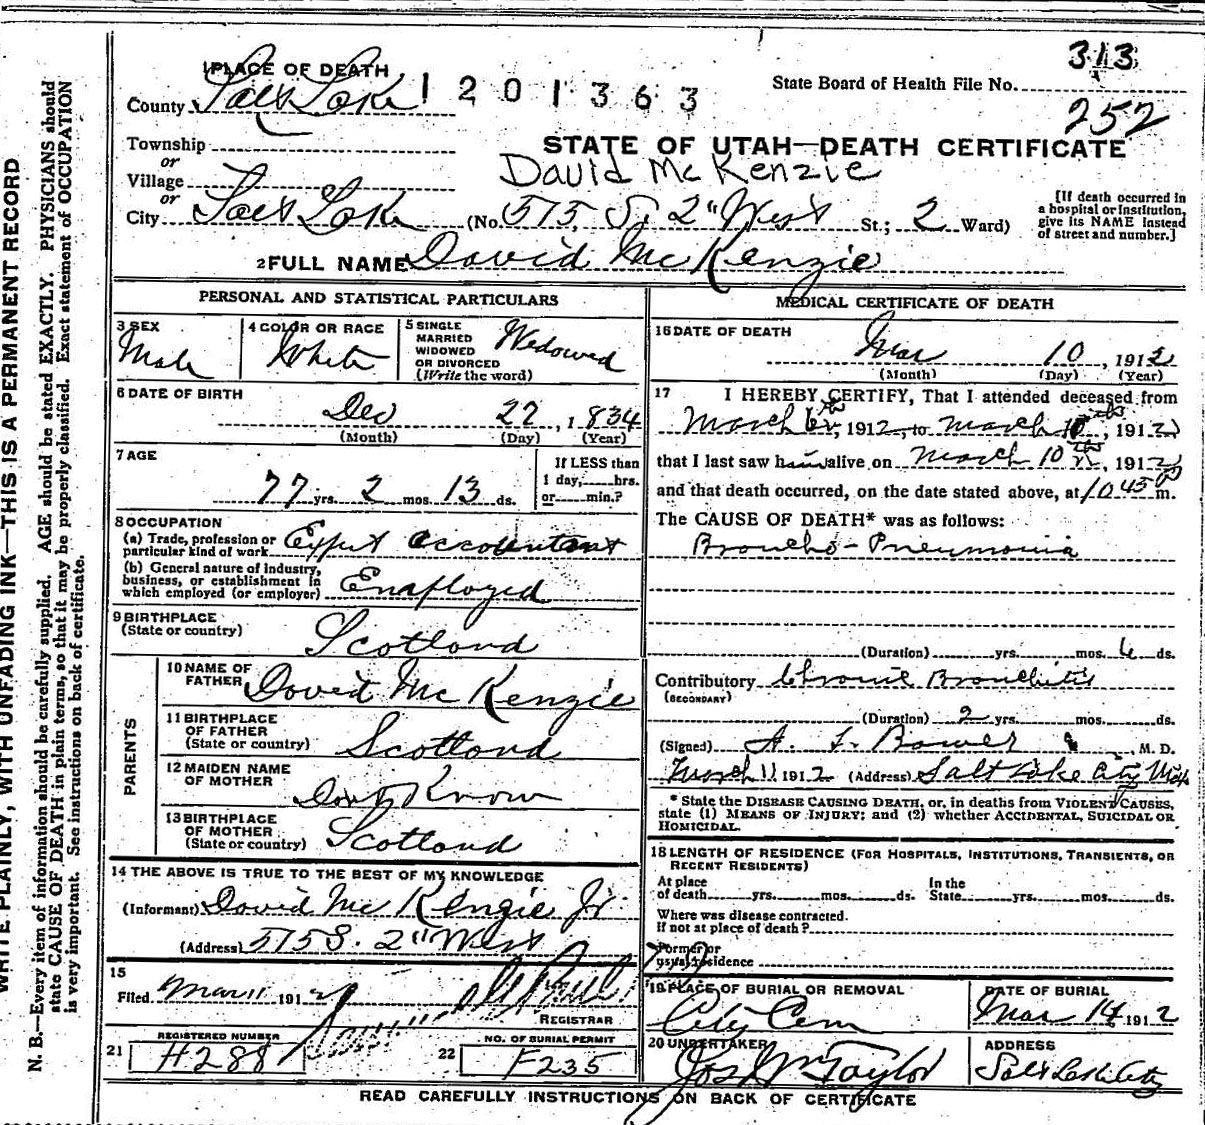 313
1 PLACE OF DEATH
State Board of Health File No.
County Salt Lake 1201363
252
Township
STATE OF UTAH—DEATH CERTIFICATE
or
David McKenzie
Village
or
City Salt Lake (No. 575, S. 2" West St.; 2 Ward)
[If death occurred in
a hospital or institution,
give its NAME instead
of street and number.]
2 FULL NAME David McKenzie
PERSONAL AND STATISTICAL PARTICULARS
3 SEX
Male
4 COLOR OR RACE
White
5 SINGLE
MARRIED
WIDOWED
OR DIVORCED
(Write the word)
Widowed
6 DATE OF BIRTH
Dec 22, 1834
(Month) (Day) (Year)
7 AGE
77 yrs. 2 mos. 13 ds.
If LESS than
1 day, hrs.
or min.?
8 OCCUPATION
(a) Trade, profession or
particular kind of work Expert accountant
(b) General nature of industry,
business, or establishment in
which employed (or employer) Employed
9 BIRTHPLACE
(State or country)
Scotland
PARENTS
10 NAME OF
FATHER David McKenzie
11 BIRTHPLACE
OF FATHER
(State or country) Scotland
12 MAIDEN NAME
OF MOTHER
Dont Know
13 BIRTHPLACE
OF MOTHER
(State or country) Scotland
14 THE ABOVE IS TRUE TO THE BEST OF MY KNOWLEDGE
(Informant) David McKenzie Jr
(Address) 575 S. 2" West
15
Filed Mar 11 1912
REGISTRAR
REGISTERED NUMBER
21 H288
NO. OF BURIAL PERMIT
22 F235
MEDICAL CERTIFICATE OF DEATH
16 DATE OF DEATH
Mar 10, 1912
(Month) (Day) (Year)
17 I HEREBY CERTIFY, That I attended deceased from
March 6th, 1912, to March 10th, 1912
that I last saw him alive on March 10th, 1912
and that death occurred, on the date stated above, at 10 45 P m.
The CAUSE OF DEATH* was as follows:
Broncho-Pneumonia
(Duration) yrs. mos. 6 ds.
Contributory Chronic Bronchitis
(SECONDARY)
(Duration) 2 yrs. mos. ds.
(Signed) A. J. Bower, M. D.
March 11 1912 (Address) Salt Lake City Utah
* State the DISEASE CAUSING DEATH, or, in deaths from VIOLENT CAUSES,
state (1) MEANS OF INJURY; and (2) whether ACCIDENTAL, SUICIDAL OR
HOMICIDAL.
18 LENGTH OF RESIDENCE (FOR HOSPITALS, INSTITUTIONS, TRANSIENTS, OR
RECENT RESIDENTS)
At place
of death yrs. mos. ds.
In the
State yrs. mos. ds.
Where was disease contracted.
if not at place of death?
Former or
usual residence
19 PLACE OF BURIAL OR REMOVAL
City Cem
DATE OF BURIAL
Mar 14 1912
20 UNDERTAKER
Jos Wm Taylor
ADDRESS
Salt Lake City
READ CAREFULLY INSTRUCTIONS ON BACK OF CERTIFICATE
WRITE PLAINLY, WITH UNFADING INK—THIS IS A PERMANENT RECORD
N. B.—Every item of information should be carefully supplied. AGE should be stated EXACTLY. PHYSICIANS should
state CAUSE OF DEATH in plain terms, so that it may be properly classified. Exact statement of OCCUPATION
is very important. See instructions on back of certificate.